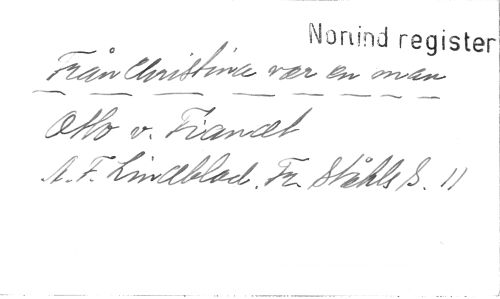 Nonind register
Från Christina var en man
Otto v. Fiandt
A. F. Lindblad. Fr. Ståhls S. 11